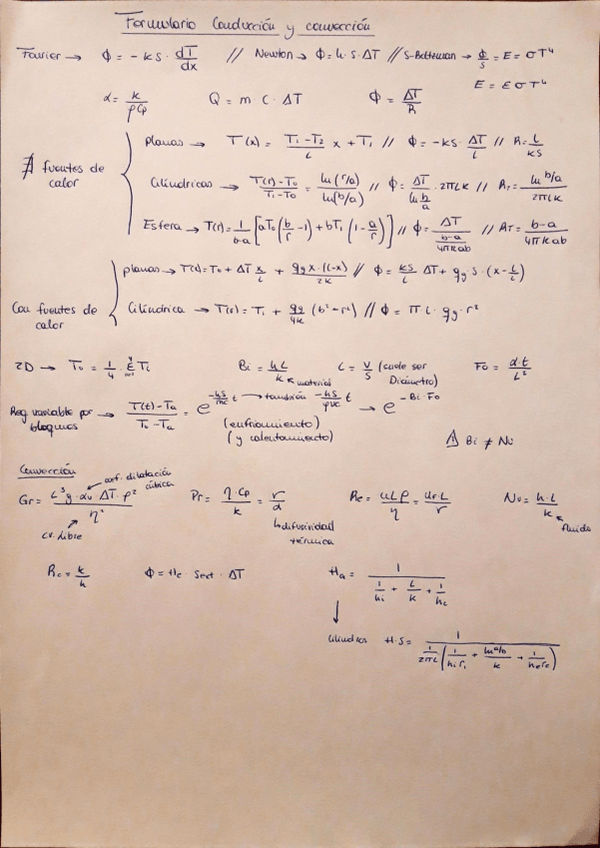 Formulario Conducción y convección
Fourier → ϕ = -kS · dT/dx // Newton → ϕ = h·S·ΔT // S-Boltzman → ϕ/S = E = σT⁴
E = εσT⁴
α = k/ρCp   Q = m · C · ΔT   ϕ = ΔT/R
∄ fuentes de calor
planas → T(x) = (T₁-T₂)/L x + T₁ // ϕ = -kS · ΔT/L // R = L/kS
Cilíndricas → (T(r)-T₀)/(T₁-T₀) = ln(r/a)/ln(b/a) // ϕ = ΔT/ln b/a · 2πLk // R₁ = ln b/a / 2πLk
Esfera → T(r) = 1/(b-a) [aT₀(b/r - 1) + bT₁(1 - a/r)] // ϕ = ΔT/((b-a)/4πkab) // R₁ = (b-a)/4πkab
Con fuentes de calor
planas → T(x) = T₀ + ΔT x/L + qg x·(L-x)/2k // ϕ = kS/L ΔT + qg S·(x - L/2)
Cilíndrica → T(r) = T₁ + qg/4k (b² - r²) // ϕ = πL · qg · r²
2D → T₀ = 1/4 · Σ Ti   Bi = hL/k   L = V/S (suele ser Diámetro)   Fo = α·t/L²
material
Reg variable por bloques → (T(t)-Ta)/(T₀-Ta) = e^(-hS/mc t) → también -hS/ρVc t → e^(-Bi·Fo)
(enfriamiento)
(y calentamiento)
⚠ Bi ≠ Nu
Convección
coef. dilatación cúbica
Gr = L³g·αv ΔT·ρ²/η²   Pr = η·Cp/k = ν/α   Re = uLρ/η = u·L/ν   Nu = h·L/k
cv. libre
difusividad térmica
fluido
Rc = k/h   ϕ = Hc · Sext · ΔT   Ha = 1/(1/hi + L/k + 1/hc)
Cilindros H·S = 1/(1/2πL (1/hiri + ln b/a / k + 1/here))